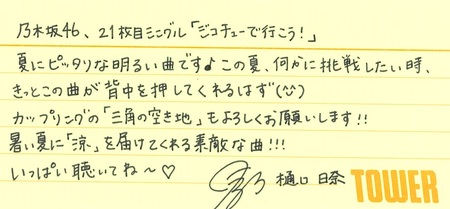 乃木坂46、21枚目シングル「ジコチューで行こう!」
夏にピッタリな明るい曲です♪この夏、何かに挑戦したい時、
きっとこの曲が背中を押してくれるはず(^^)
カップリングの「三角の空き地」もよろしくお願いします!!
暑い夏に「涼」を届けてくれる素敵な曲!!!
いっぱい聴いてね〜♡
樋口日奈 TOWER